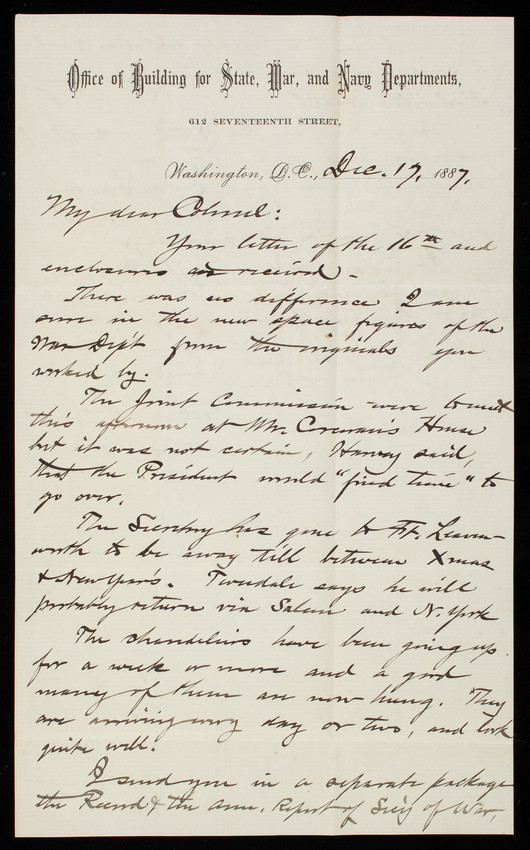 Office of Building for State, War, and Navy Departments,
612 SEVENTEENTH STREET,
Washington, D.C., Dec. 17, 1887,
My dear Colonel:
Your letter of the 16th and
enclosures are received -
There was no difference I am
sure in the new space figures of the
War Dep't from the originals you
worked by.
The Joint Commission were to meet
this afternoon at Mr. Corcoran's House
but it was not certain, Harvey said,
that the President would "find time" to
go over.
The Secretary has gone to Ft. Leaven-
worth to be away till between Xmas
& New Year's. Tweedale says he will
probably return via Salem and N. York
The chandeliers have been going up
for a week or more and a good
many of them are now hung. They
are arriving every day or two, and look
quite well.
I send you in a separate package
the Record & the Ann. Report of Sec'y of War,